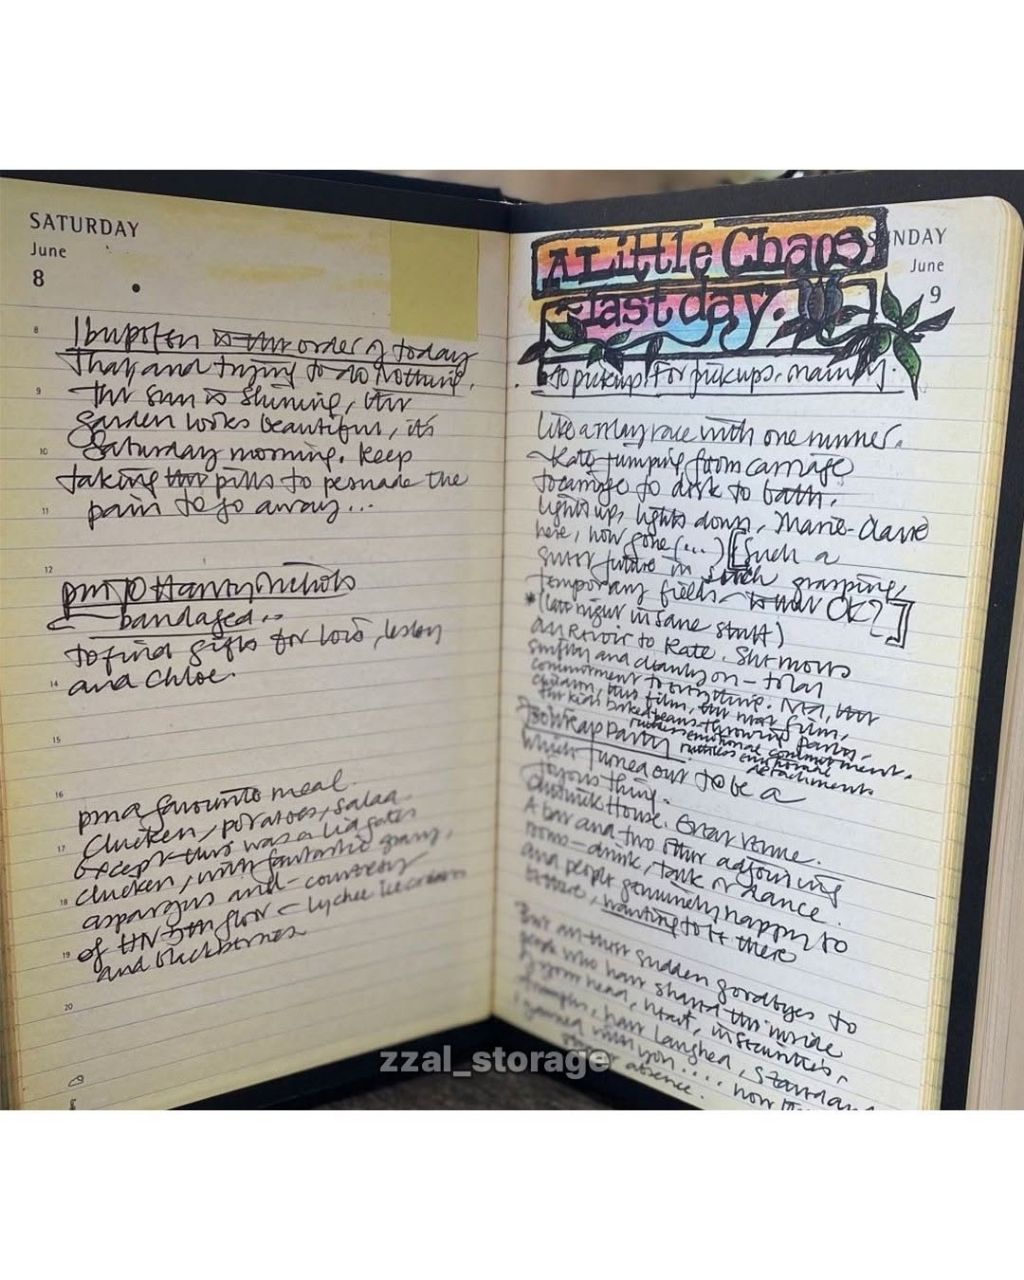 SATURDAY
June
8
8
Ibuprofen is the order of today
That and trying to do nothing.
9
The sun is shining, the
garden looks beautiful, it's
10
Saturday morning. Keep
taking the pills to persuade the
11
pain to go away...
12
pm to Harvey Nichols
bandaged...
to find gifts for Lois, Lesley
14
and Chloe.
15
16
pm a favourite meal.
17
Chicken, potatoes, salad.
Except this was a Lidgates
chicken, with fantastic gravy,
18
asparagus and – courtesy
of the 5th floor – lychee ice cream
19
and blackberries
20
A Little Chaos
SUNDAY
last day.
June
9
to pickups. For pickups, mainly.
Like a relay race with one runner.
Kate jumping from carriage
to carriage to desk to bath.
Lights up, lights down, Marie-Claire
here, now gone (...) [Such a
future in such grasping,
temporary fields OK?]
*(late night insane stuff)
Au Revoir to Kate. She moves
swiftly and cleanly on – total
commitment to everything. Ned, the
children, this film, the next film,
the kids baked beans throwing party.
ruthless emotional commitment.
ruthless emotional
detachments
To Wrap Party
which turned out to be a
joyous thing.
House. Great venue.
A bar and two other adjoining
rooms – drink, talk or dance.
and people genuinely happy to
be there, wanting to be there
But all these sudden goodbyes to
people who have shared the inside
of your head, heart, insecurities,
triumphs, have laughed, stared and
yawned with you.... now the
absence.
zzal_storage